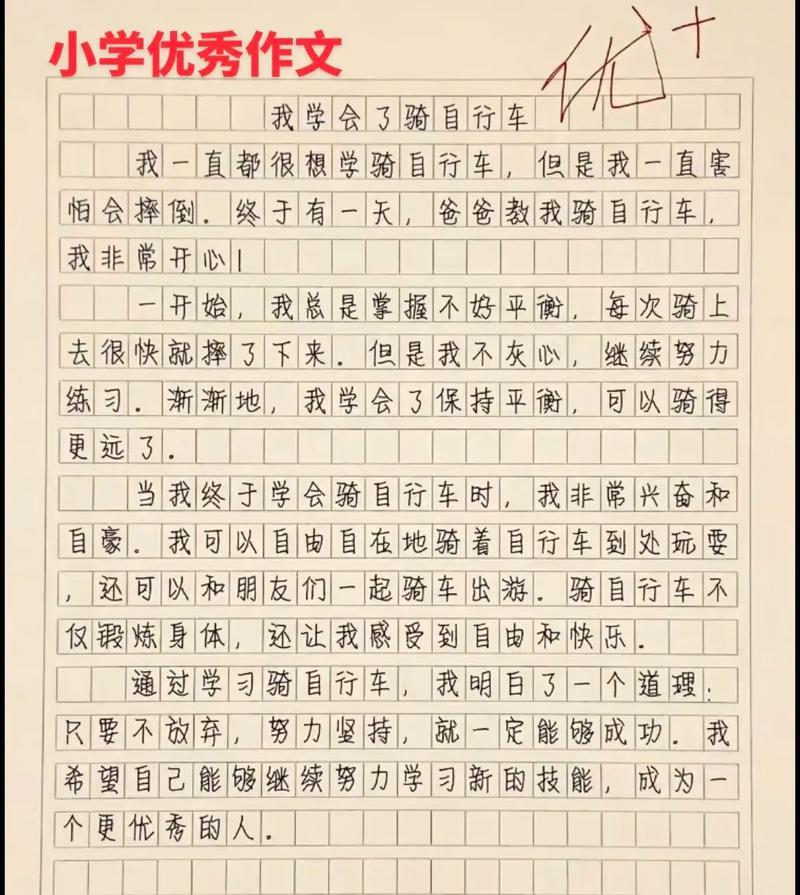 小学优秀作文
优+
我学会了骑自行车
我一直都很想学骑自行车，但是我一直害
怕会摔倒．终于有一天，爸爸教我骑自行车，
我非常开心！
一开始，我总是掌握不好平衡，每次骑上
去很快就摔了下来．但是我不灰心，继续努力
练习．渐渐地，我学会了保持平衡，可以骑得
更远了．
当我终于学会骑自行车时，我非常兴奋和
自豪．我可以自由自在地骑着自行车到处玩耍
，还可以和朋友们一起骑车出游．骑自行车不
仅锻炼身体，还让我感受到自由和快乐．
通过学习骑自行车，我明白了一个道理：
只要不放弃，努力坚持，就一定能够成功．我
希望自己能够继续努力学习新的技能，成为一
个更优秀的人．